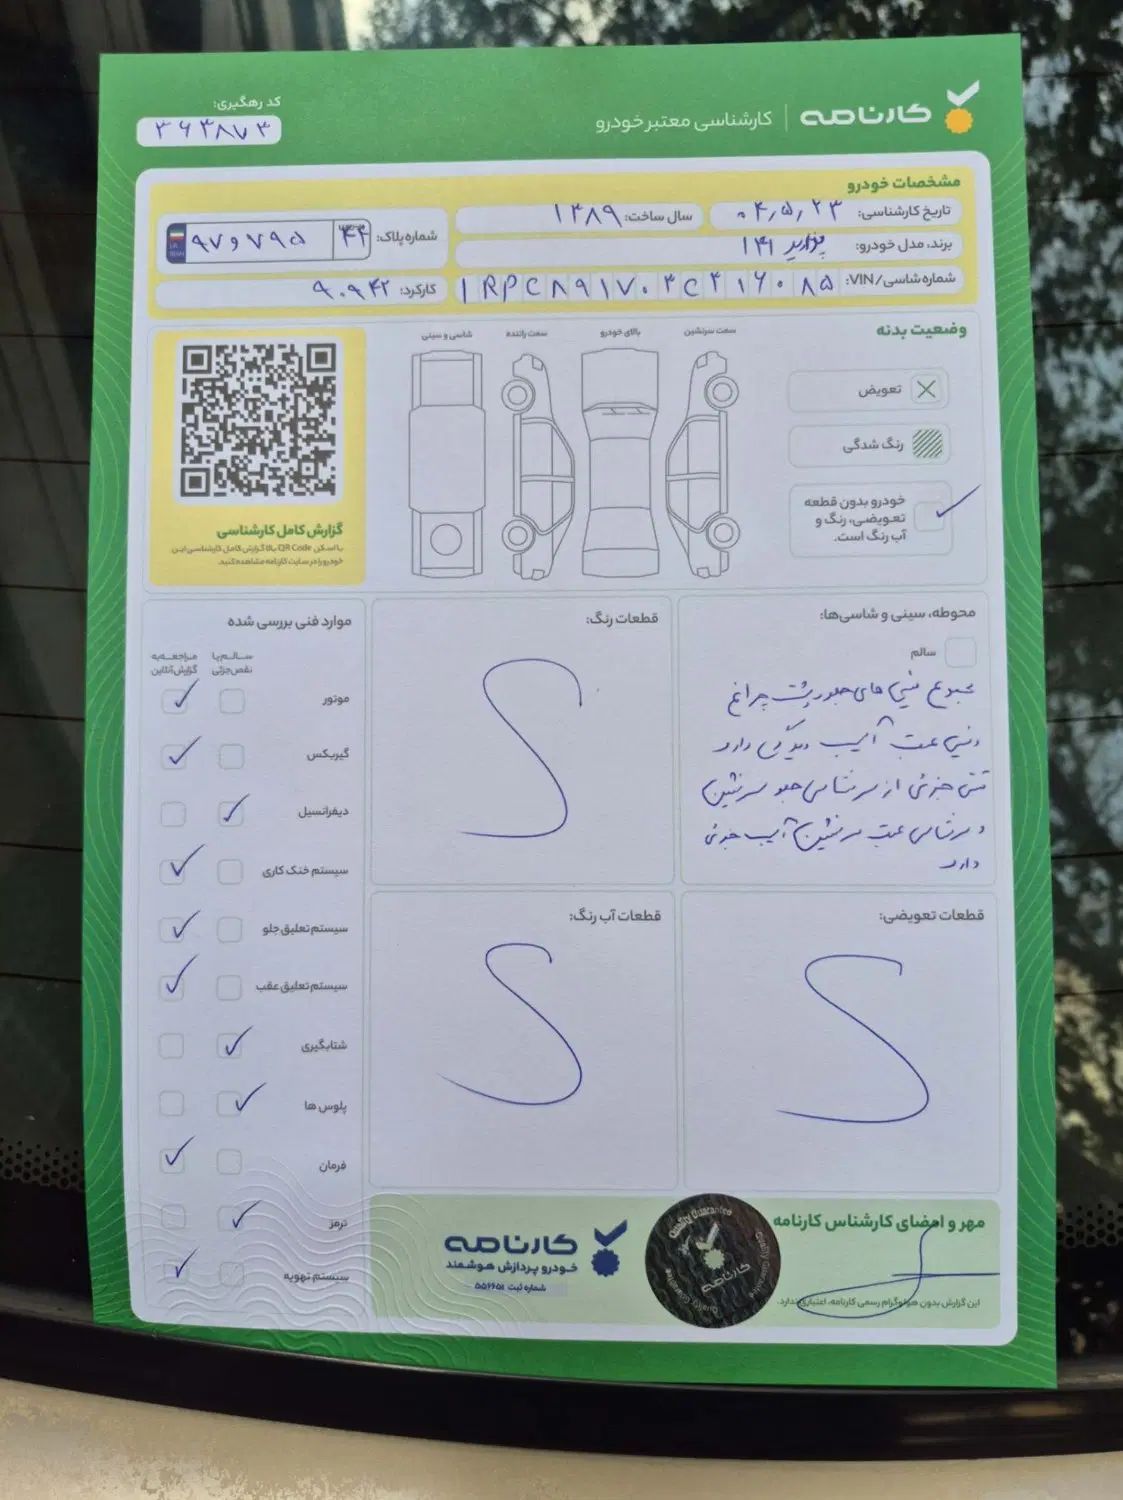 کارنامه | کارشناسی معتبر خودرو
کد رهگیری:
۳۶۳۸۷۳
مشخصات خودرو
تاریخ کارشناسی: ۰۴٫۵٫۲۳
سال ساخت: ۱۳۸۹
شماره پلاک: ۹۷و۷۹۵ ۴۴
برند، مدل خودرو: ۱۴۱
شماره شاسی/VIN: IRPC۸۹۱۷۰۳C۴۱۶۰۸۵
کارکرد: ۹۰۹۴۲
وضعیت بدنه
سمت سرنشین
بالای خودرو
سمت راننده
شاسی و سینی
تعویض
رنگ شدگی
خودرو بدون قطعه
تعویضی، رنگ و
آب رنگ است.
گزارش کامل کارشناسی
با اسکن QR Code بالا گزارش کامل کارشناسی این
خودرو را در سایت کارنامه مشاهده کنید.
محوطه، سینی و شاسی‌ها:
سالم
مجموع سینی های جلو پشت چراغ
و سینی عقب آسیب دیدگی دارد
جزئی از سرشاسی جلو سرنشین
و سرشاسی عقب سرنشین آسیب جزئی
دارد
قطعات رنگ:
قطعات تعویضی:
قطعات آب رنگ:
موارد فنی بررسی شده
سالم یا
نقص جزئی
مراجعه به
گزارش آنلاین
موتور
گیربکس
دیفرانسیل
سیستم خنک کاری
سیستم تعلیق جلو
سیستم تعلیق عقب
شتابگیری
پلوس ها
فرمان
ترمز
سیستم تهویه
مهر و امضای کارشناس کارنامه
این گزارش بدون هولوگرام رسمی کارنامه، اعتباری ندارد.
Quality Guaranteed
کارنامه
کارنامه
خودرو پردازش هوشمند
شماره ثبت ۵۵۶۶۵۱